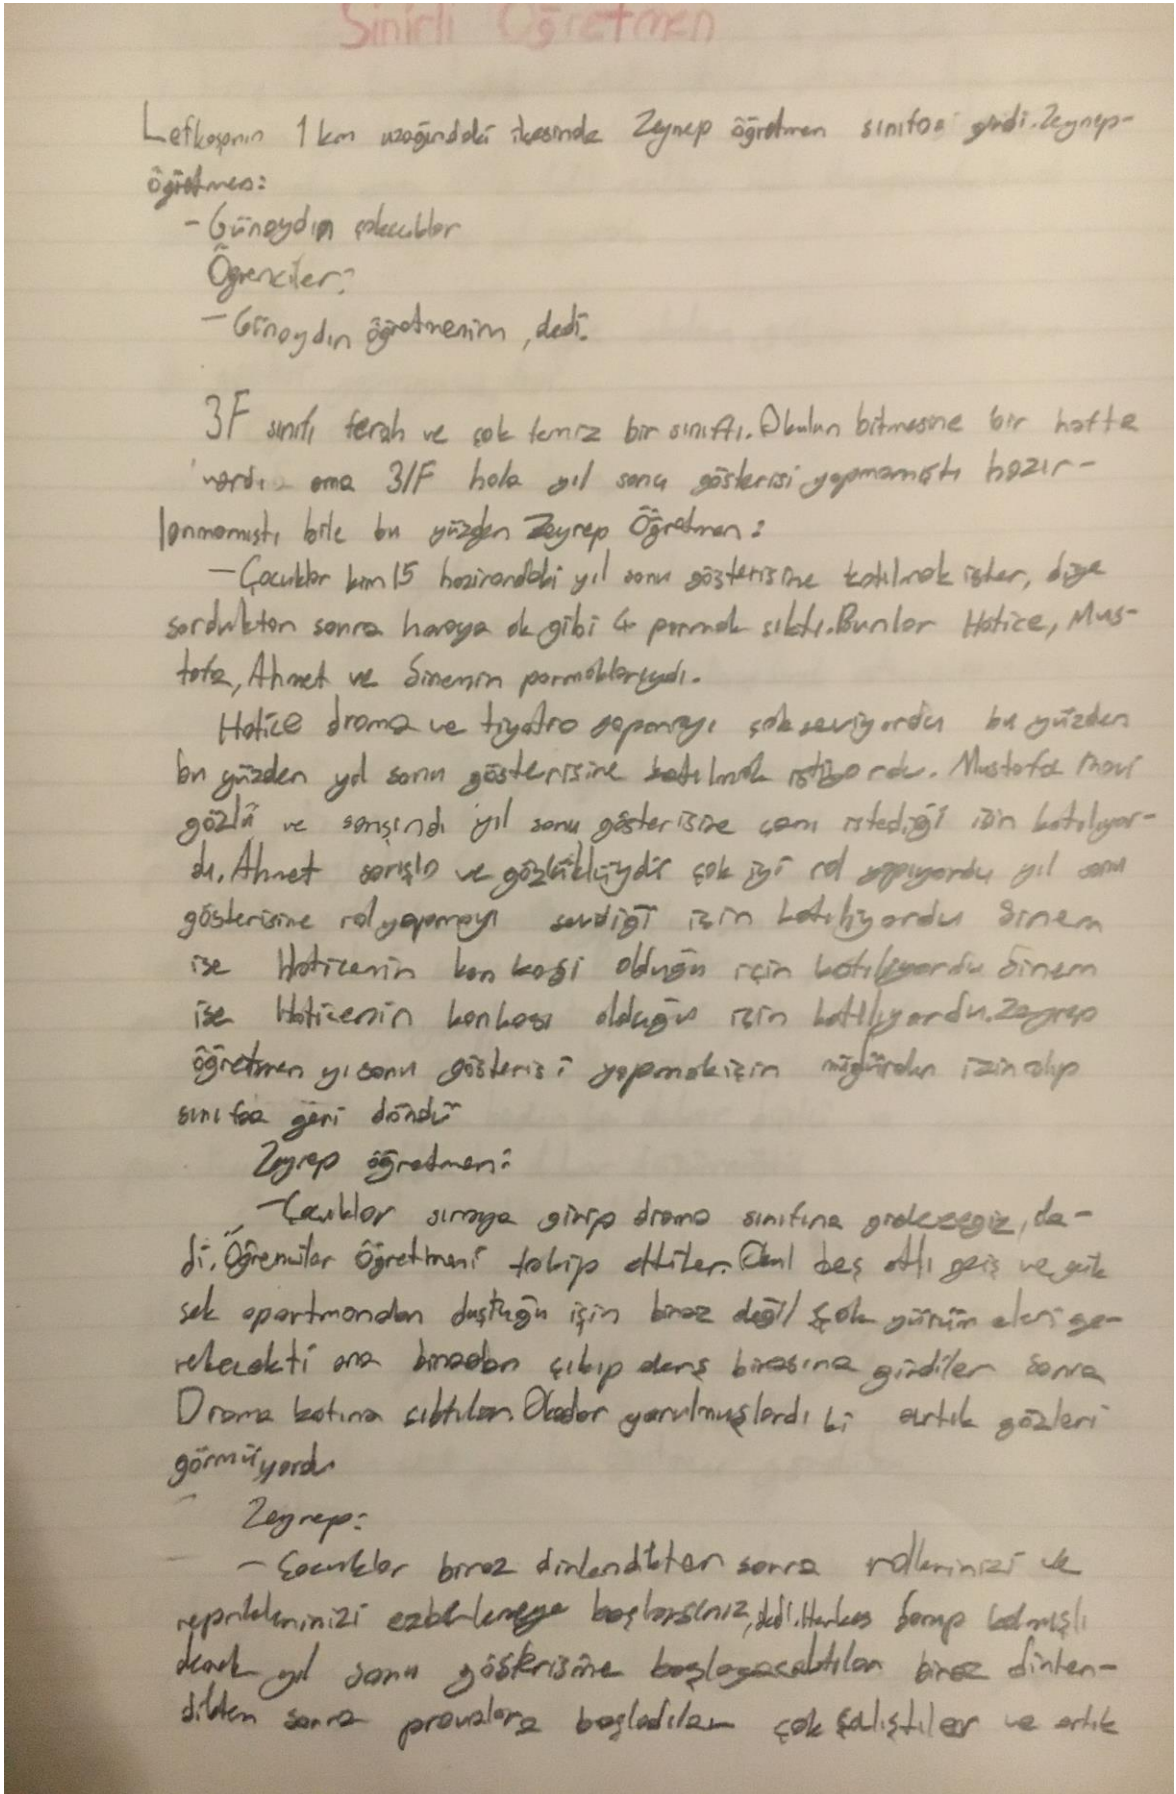 Sinirli Öğretmen
Lefkoşanın 1 km uzağındaki ilkesinde Zeynep öğretmen sınıfa girdi. Zeynep-
öğretmen:
- Günaydın çokcuklar
Öğrenciler:
- Günaydın öğretmenim, dedi.
3F sınıfı ferah ve çok temiz bir sınıftı. Okulun bitmesine bir hafta
vardı ama 3/F hala yıl sonu gösterisi yapmamıştı hazır-
lanmamıştı bile bu yüzden Zeynep Öğretmen:
- Çocuklar kim 15 hazirandaki yıl sonu gösterisine katılmak ister, diye
sorduktan sonra havaya ok gibi 4 parmak çıktı. Bunlar Hatice, Mus-
tafa, Ahmet ve Sinemin parmaklarıydı.
Hatice drama ve tiyatro yapmayı çok seviyordu bu yüzden
bu yüzden yıl sonu gösterisine katılmak istiyordu. Mustafa mavi
gözlü ve sarışındı yıl sonu gösterisine canı istediği için katılıyor-
du. Ahmet sarışın ve gözlüklüydü çok iyi rol yapıyordu yıl sonu
gösterisine rol yapmayı sevdiği için katılıyordu Sinem
ise Haticenin kankası olduğu için katılıyordu Sinem
ise Haticenin kankası olduğu için katılıyordu. Zeynep
öğretmen yı sonu gösterisi yapmak için müdürden izin alıp
sınıfa geri döndü
Zeynep öğretmen:
- Çocuklar sıraya girip drama sınıfına gidecegiz, de-
di. Öğrenciler Öğretmeni takip ettiler. Okul beş altı geniş ve yük
sek apartmandan duştuğu için biraz değil çok yürümeleri ge-
rekecekti ana binadan çıkıp ders binasına girdiler sonra
Drama katına çıktılar. Okadar yorulmuşlardı ki artık gözleri
görmüyordu
Zeynep:
- Çocuklar biraz dinlendikten sonra rollerinizi ve
repriklerinizi ezberlemeye başlarsınız, dedi. Herkes kalmıştı
demek yıl sonu gösterisine başlayacaktılar biraz dinlen-
dikten sonra provalara başladılar çok çalıştılar ve artık